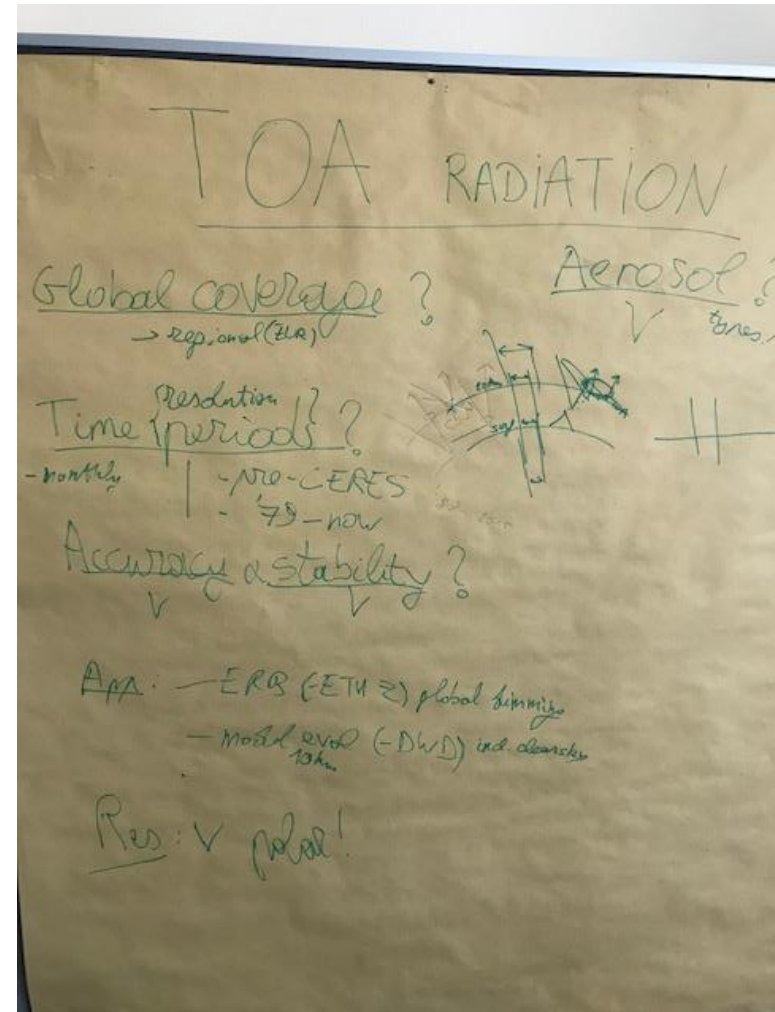 TOA RADIATION
Global coverage ?
→ regional (
Aerosol ?
V
Time {resolution / periods} ?
- monthly
- pre-CERES
- '79 - now
Accuracy & stability ?
V V
App: — ERB (-ETH Z) global dimming
— model eval (-DWD) incl. clearsky
10km
Res: V polar!